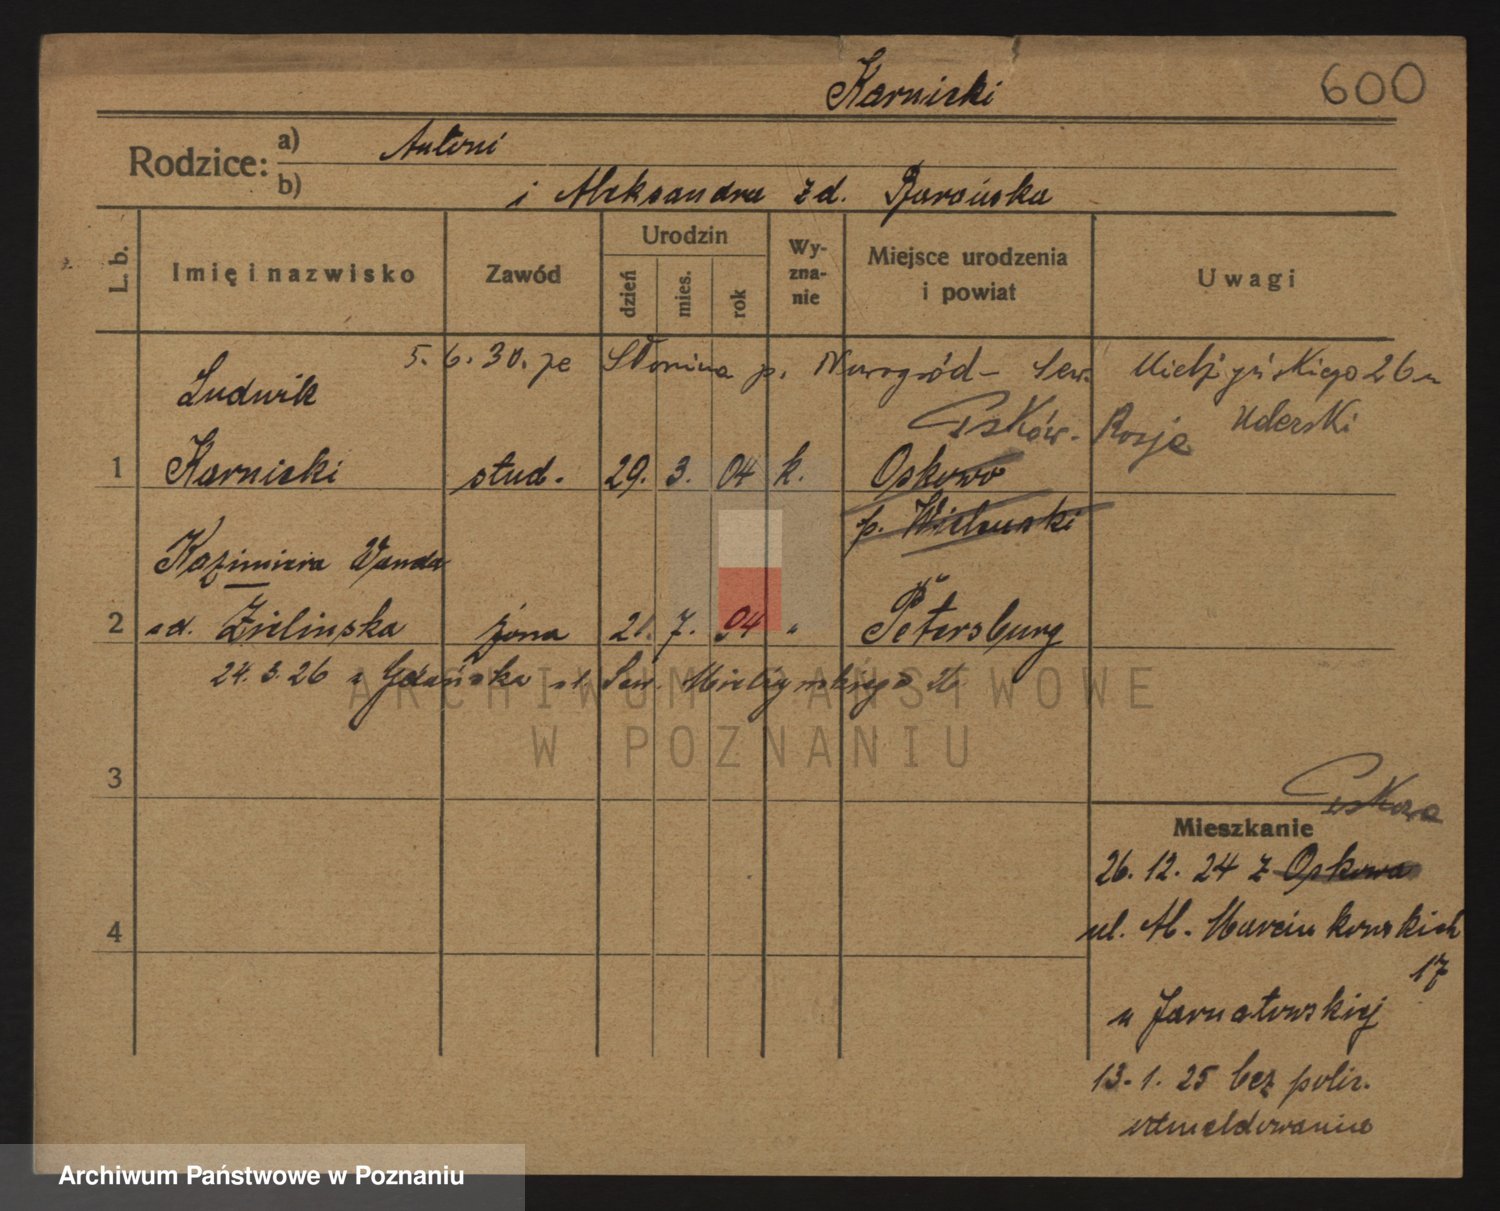 Karnicki
600
Rodzice: a) Antoni
b) i Aleksandra zd. Barańska
L. b.
Imię i nazwisko
Zawód
Urodzin
dzień
mies.
rok
Wy-
zna-
nie
Miejsce urodzenia
i powiat
Uwagi
5. 6. 30. ze Słonima p. Nowogród - Sew. Mielżyńskiego 26 u
Uderski
Ludwik
Psków - Rosja
1 Karnicki stud. 29. 3. 04 k. Oskowo
p. Wileński
Kazimiera Wanda
2 zd. Zielinska żona 21. 7. 04 " Petersburg
24. 3. 26 z Gdańska Sew. Mielżyńskiego
3
4
Pskowa
Mieszkanie
26. 12. 24 z Opkowa
ul. Al. Marcinkowskich
17
u Jarnatowskiej
13. 1. 25 bez polic.
wymeldowania
ARCHIWUM PAŃSTWOWE
W POZNANIU
Archiwum Państwowe w Poznaniu